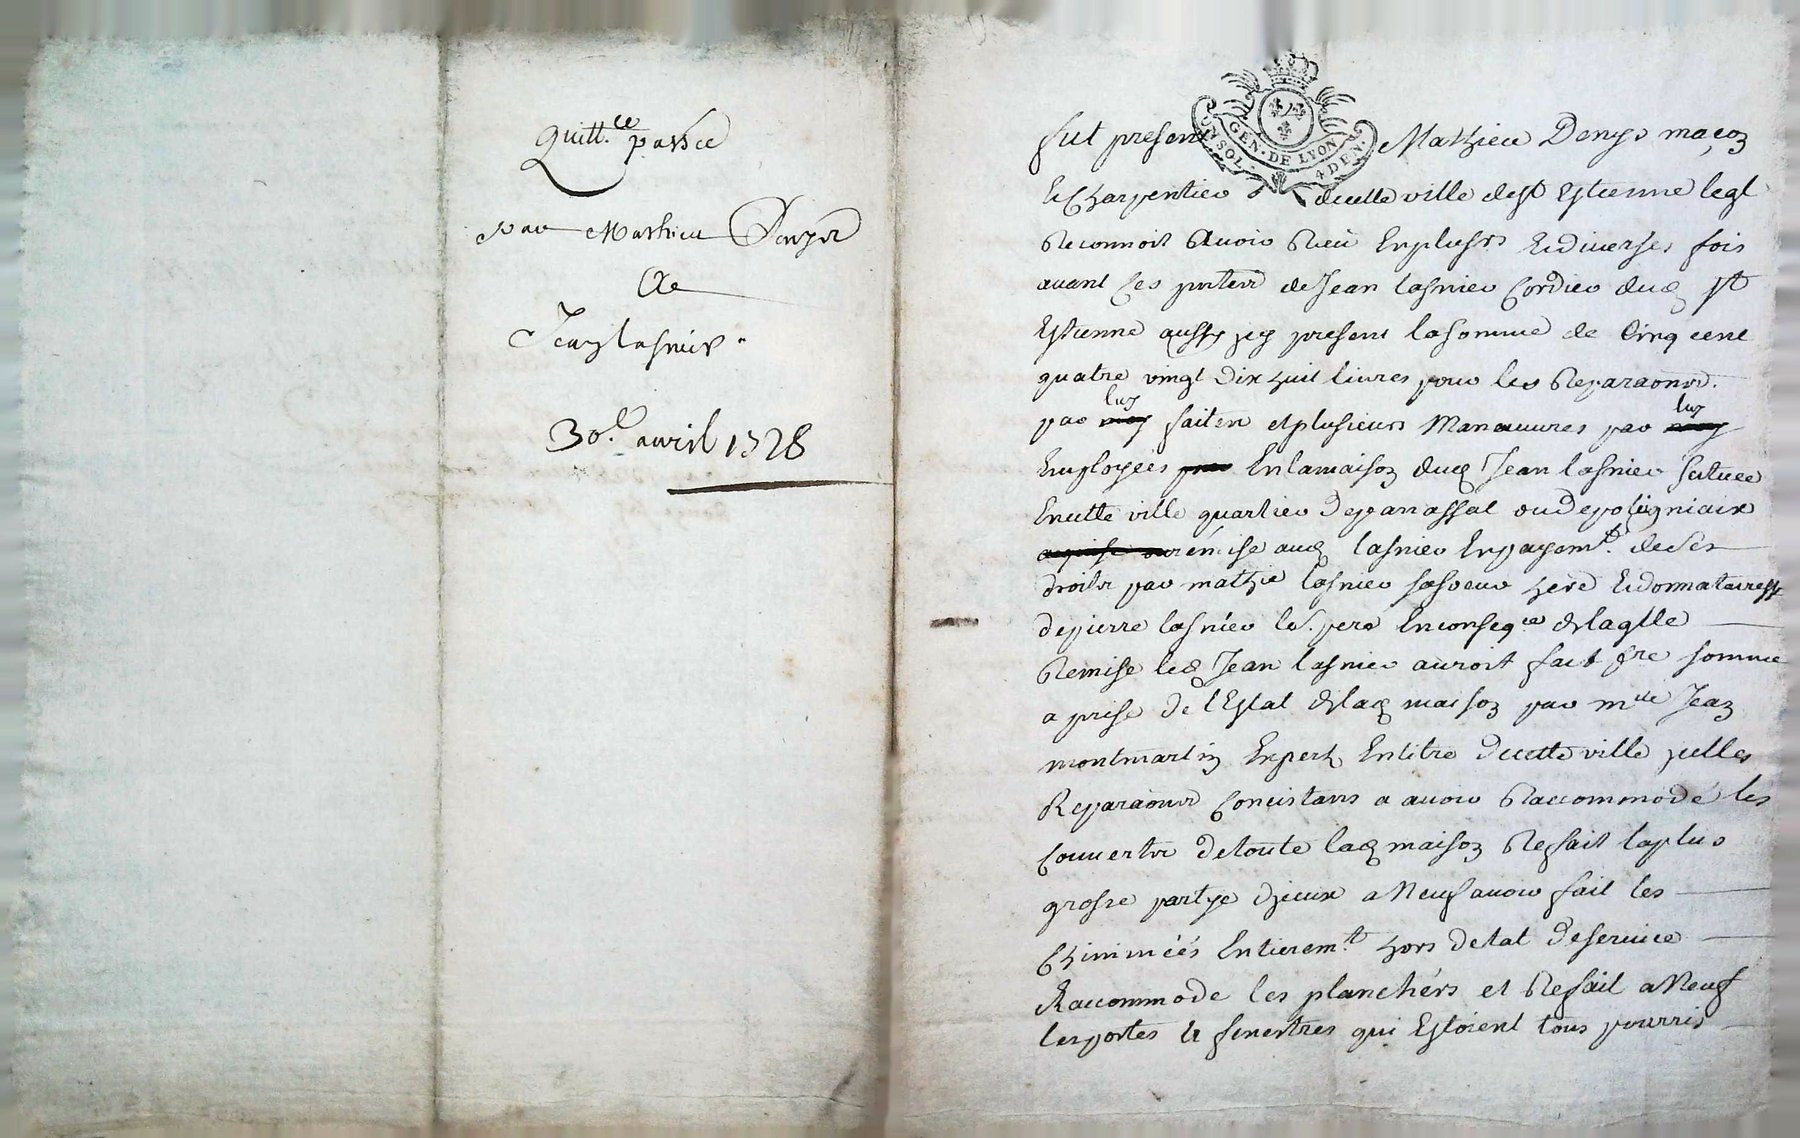 Quitt.ce passée
par Mathieu Denys
A
Jean lasnier.
30.e auril 1728
GEN. DE LYON
UN SOL. 4 DEN.
fut present Mathieu Denys maçon
& Charpentier de cette ville de St Estienne leql
Reconnoit Auoir Receu En plusrs & diuerses fois
auant Ces pntes de Jean lasnier Cordier dud St
Estienne aussy icy present la somme de Cinq cent
quatre vingt Dix huit liures pour les Reparaons
par luy faites et plusieurs Manœuures par luy
Employées En la maison dud Jean lasnier scituée
En cette ville quartier de panassat ou de polligniaix
remise aud lasnier En payemt. de ses
droits par mathie lasnier sa soeur here & donnataresse
de pierre lasnier le. pere En conseqce de laqlle
Remise led Jean lasnier auroit fait fre somme
a prise de l'Estat de lad maison par mtre Jean
montmartin Expert En titre de cette ville icelles
Reparaons Concistans a auoir Raccommodé les
Couuerts de toute lad maison Refait la plus
grosse partye d'jceux a Neuf auoir fait les
Chiminéés Entieremt. hors detat de seruice
Raccommode les planchérs et Refait a Neuf
les portes & fenestres qui Estoient tous pourris